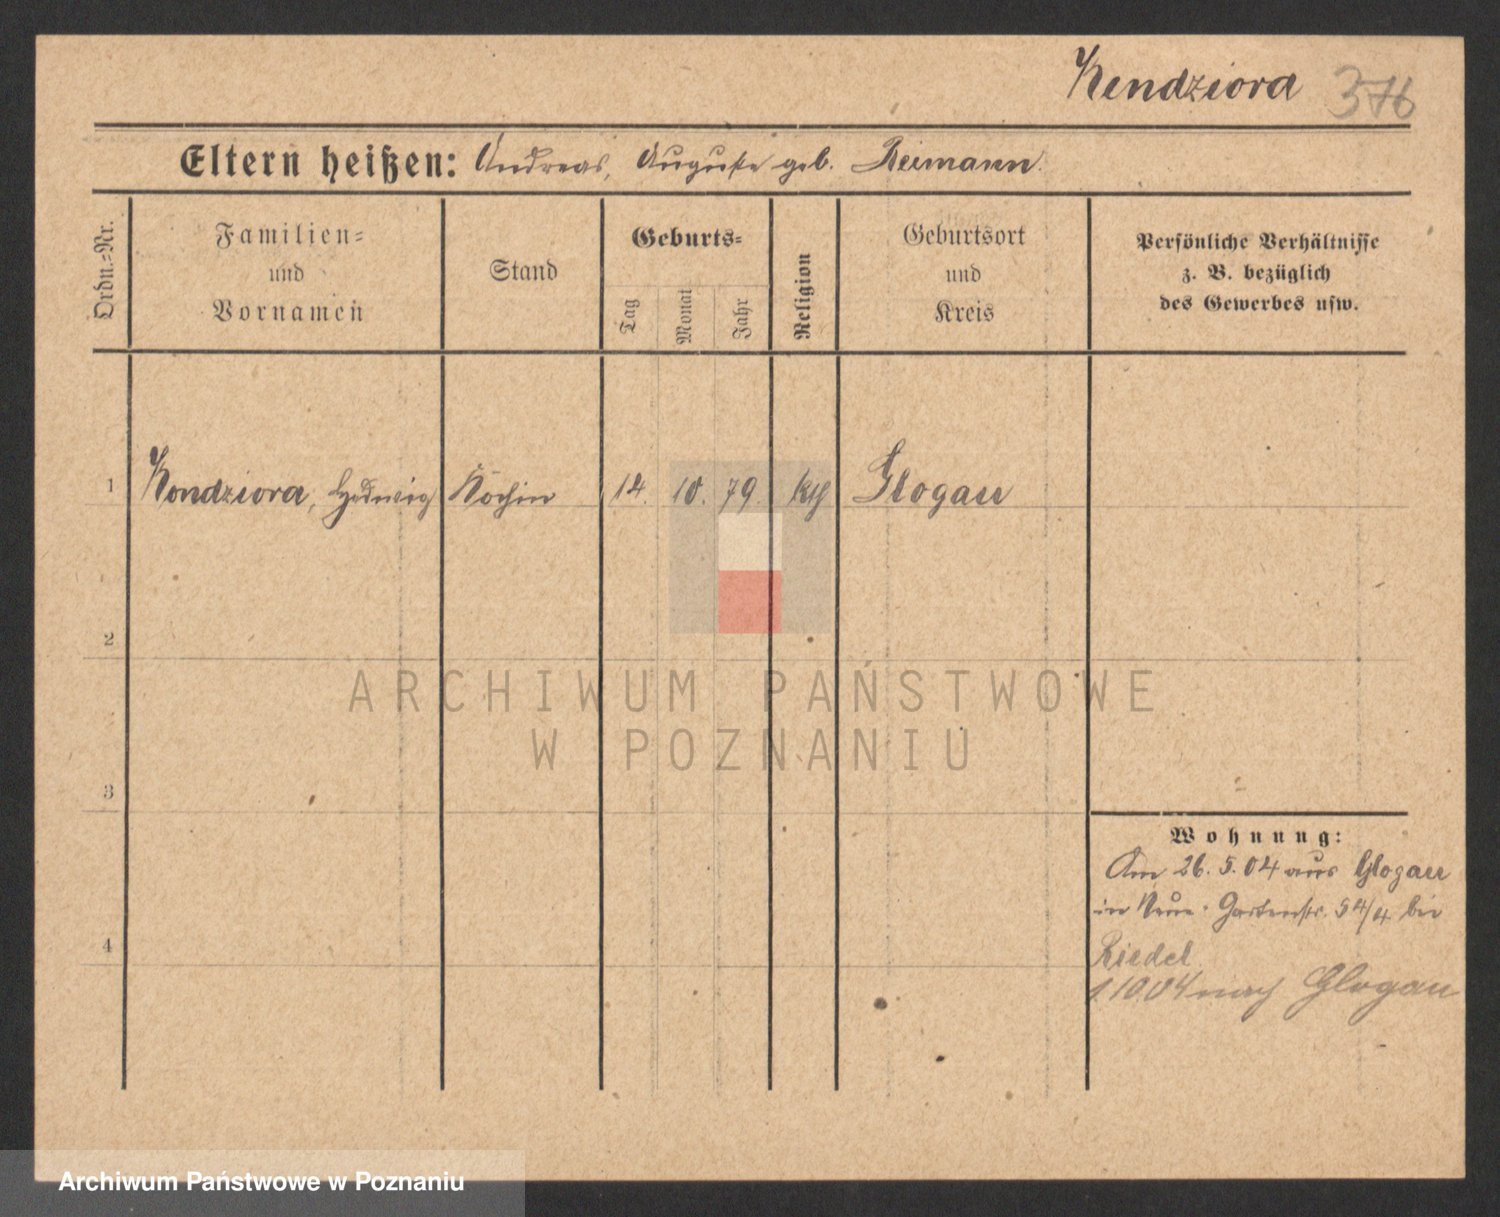 Kendziora 376
Eltern heißen: Andreas, Auguste geb. Reimann.
Ordn.=Nr.
Familien=
und
Vornamen
Stand
Geburts=
Tag
Monat
Jahr
Religion
Geburtsort
und
Kreis
Persönliche Verhältnisse
z. B. bezüglich
des Gewerbes usw.
1 Kendziora, Hedwig Köchin 14. 10. 79. kth Glogau
2
3
4
ARCHIWUM PAŃSTWOWE
W POZNANIU
Wohnung:
Am 26. 5. 04 aus Glogau
in Neue Gartenstr. 54/4 bei
Riedel
1 10.04 nach Glogau
Archiwum Państwowe w Poznaniu